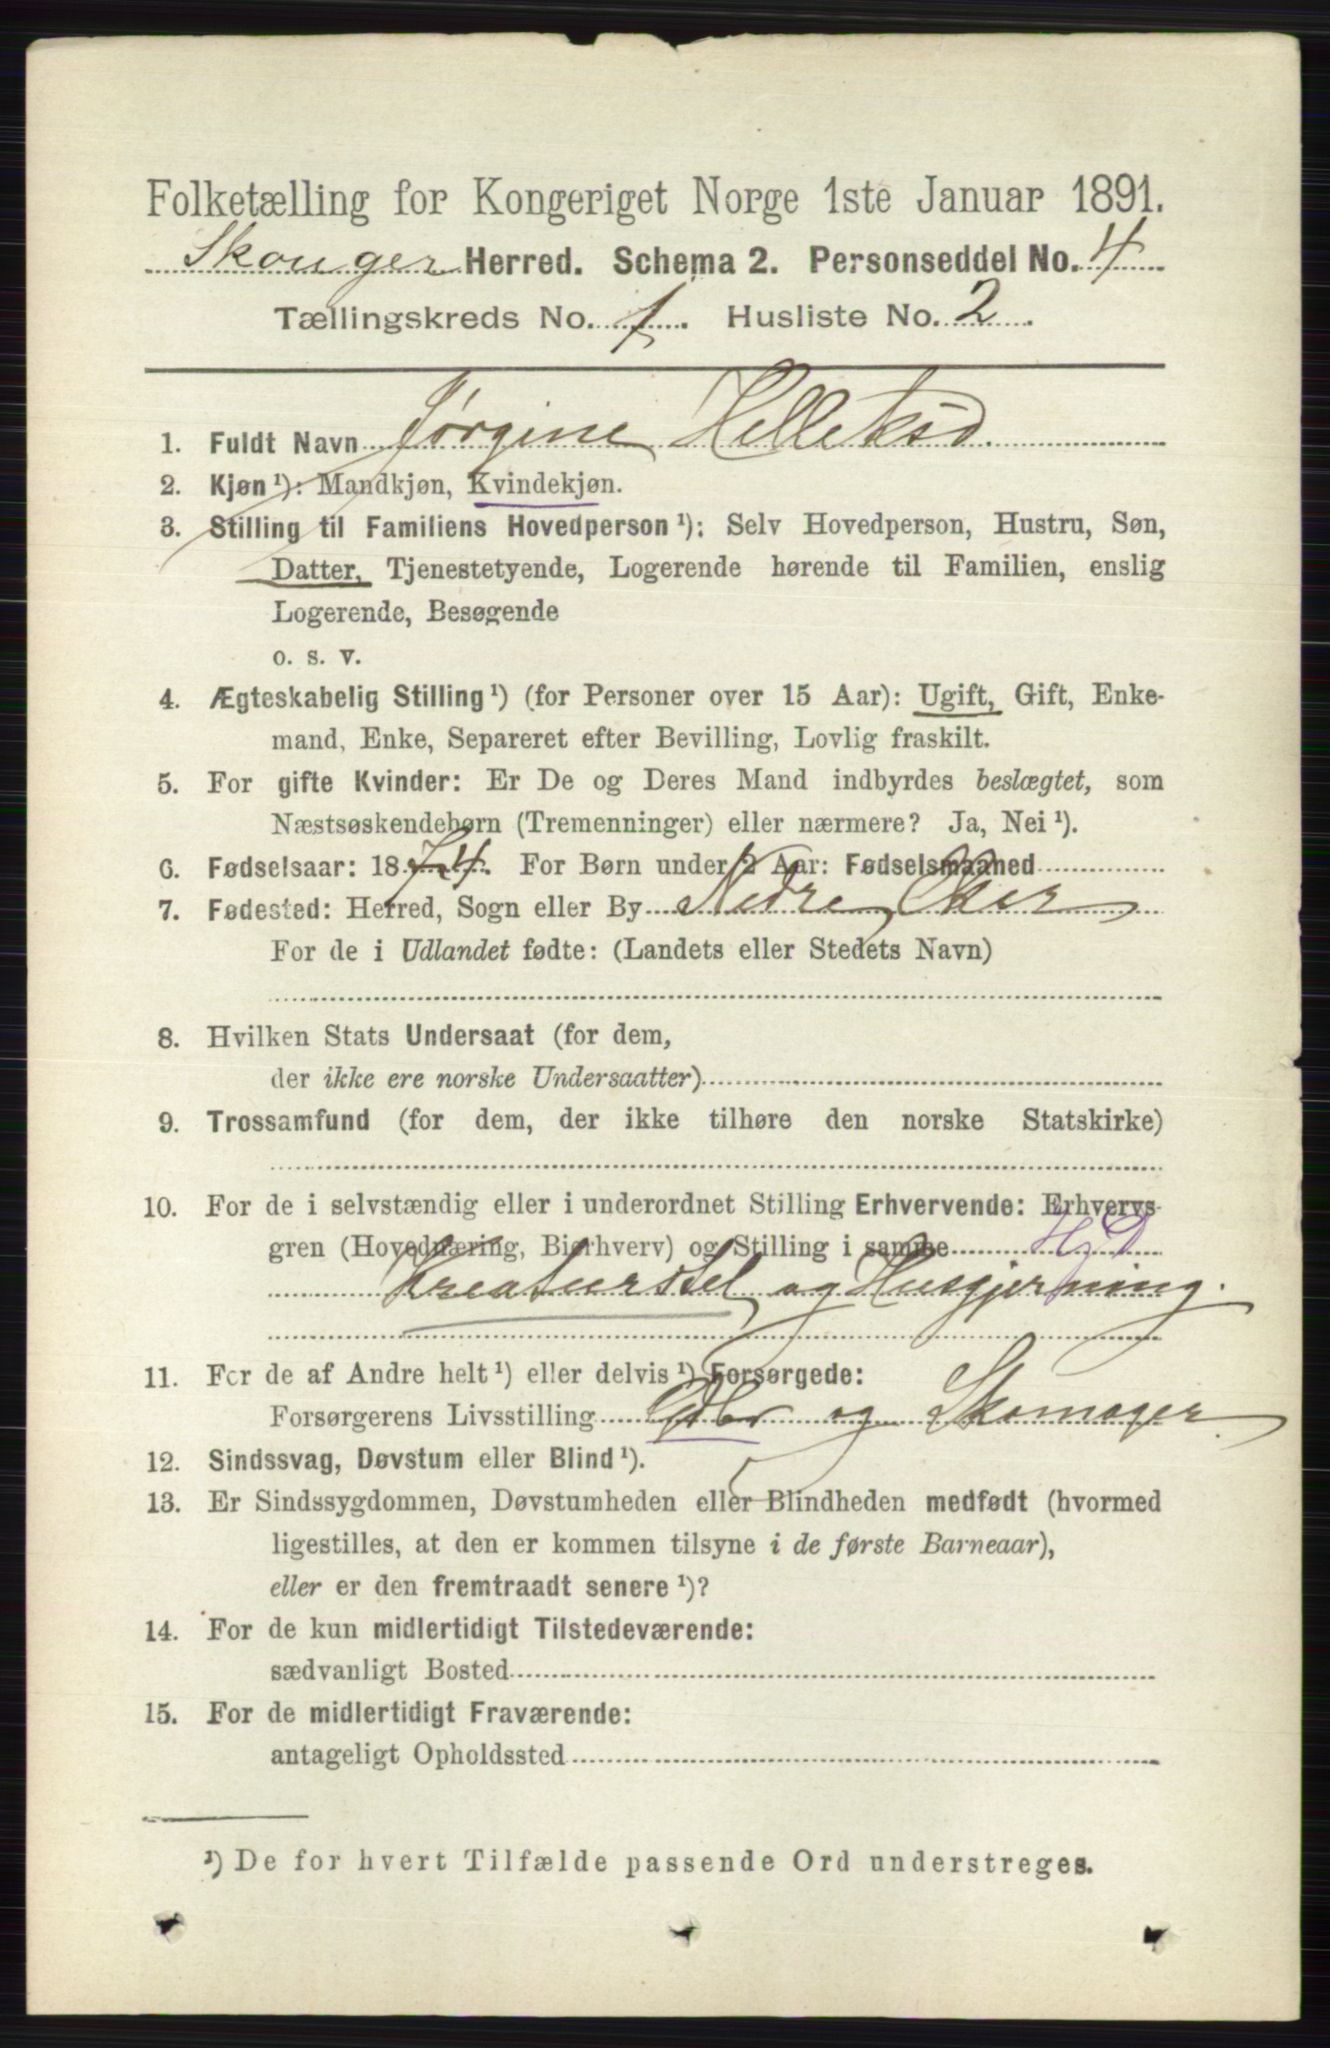 Folketælling for Kongeriget Norge 1ste Januar 1891.
Skouger Herred. Schema 2. Personseddel No. 4
Tællingskreds No. 1. Husliste No. 2.
1. Fuldt Navn Jørgine Hellekød
2. Kjøn ¹): Mandkjøn, Kvindekjøn.
3. Stilling til Familiens Hovedperson ¹): Selv Hovedperson, Hustru, Søn,
Datter, Tjenestetyende, Logerende hørende til Familien, enslig
Logerende, Besøgende
o. s. v.
4. Ægteskabelig Stilling ¹) (for Personer over 15 Aar): Ugift, Gift, Enke-
mand, Enke, Separeret efter Bevilling, Lovlig fraskilt.
5. For gifte Kvinder: Er De og Deres Mand indbyrdes beslægtet, som
Næstsøskendebørn (Tremenninger) eller nærmere? Ja, Nei ¹).
6. Fødselsaar: 1874. For Børn under 2 Aar: Fødselsmaaned
7. Fødested: Herred, Sogn eller By Nedre Eker
For de i Udlandet fødte: (Landets eller Stedets Navn)
8. Hvilken Stats Undersaat (for dem,
der ikke ere norske Undersaatter)
9. Trossamfund (for dem, der ikke tilhøre den norske Statskirke)
10. For de i selvstændig eller i underordnet Stilling Erhvervende: Erhvervs-
gren (Hovednæring, Bierhverv) og Stilling i samme HjD
Kreaturstel og Husgjerning.
11. For de af Andre helt ¹) eller delvis ¹) Forsørgede:
Forsørgerens Livsstilling Gbr og Skomager
12. Sindssvag, Døvstum eller Blind ¹).
13. Er Sindssygdommen, Døvstumheden eller Blindheden medfødt (hvormed
ligestilles, at den er kommen tilsyne i de første Barneaar),
eller er den fremtraadt senere ¹)?
14. For de kun midlertidigt Tilstedeværende:
sædvanligt Bosted
15. For de midlertidigt Fraværende:
antageligt Opholdssted
¹) De for hvert Tilfælde passende Ord understreges.